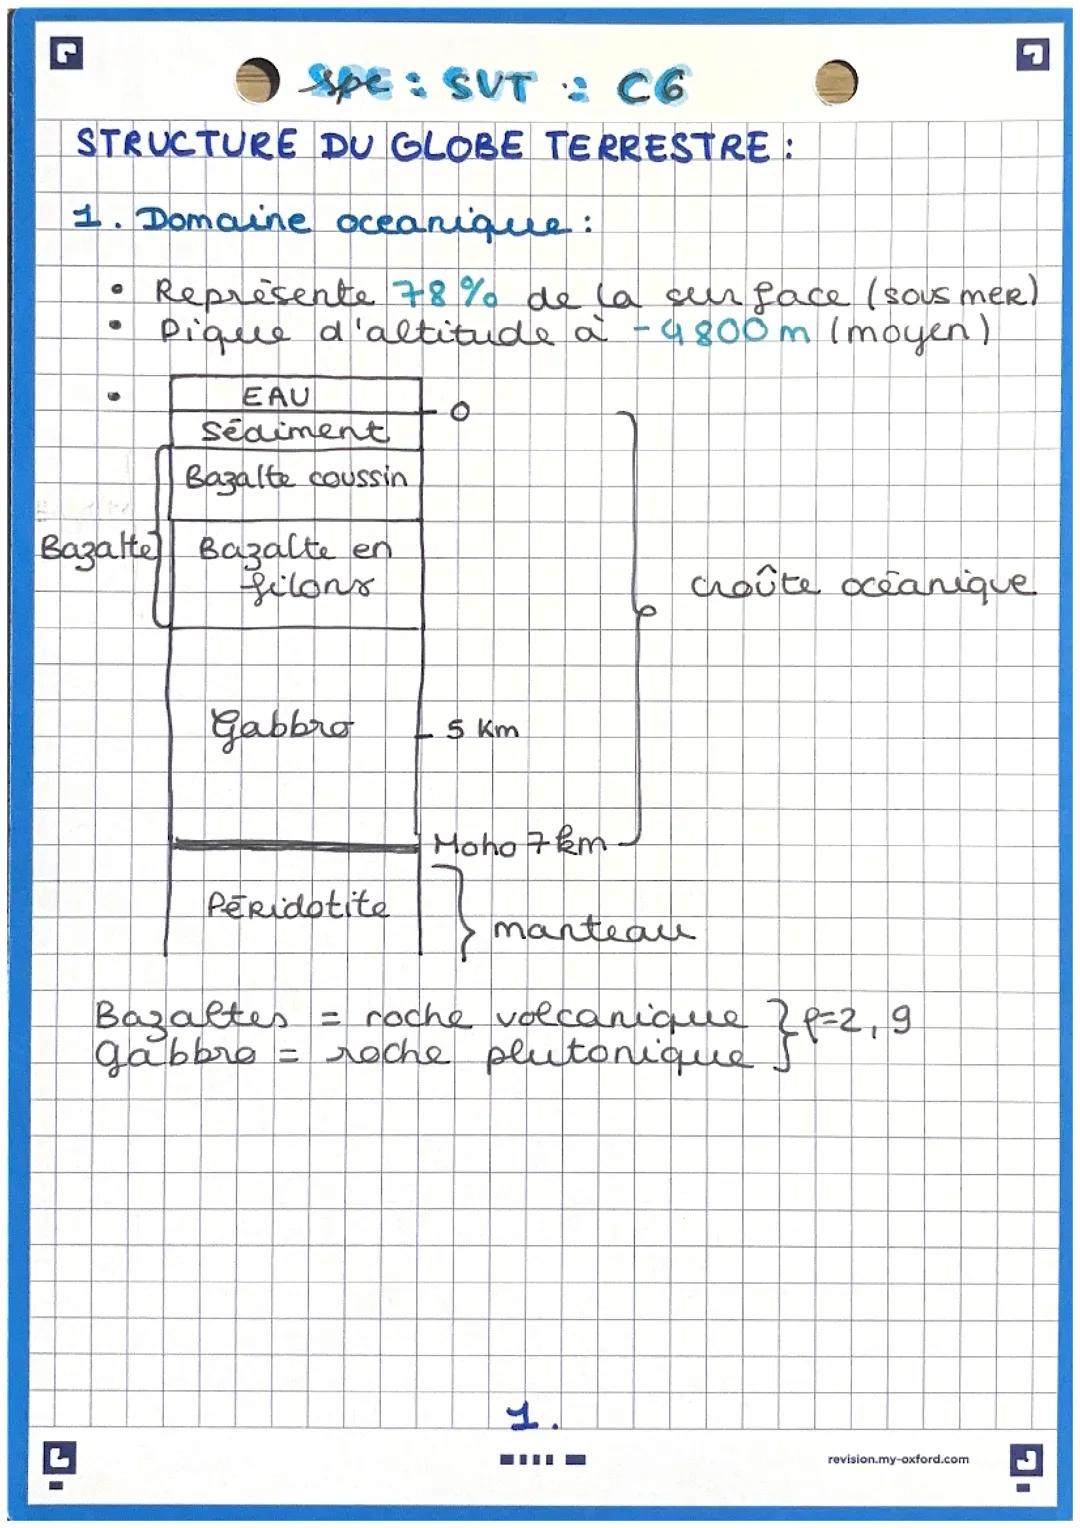 spe : SVT : C6
STRUCTURE DU GLOBE TERRESTRE :
1. Domaine oceanique :
• Représente 78% de la surface (sous mer)
• Pique d'altitude à -4800m (moyen)
•
EAU
0
Sédiment
Bazalte coussin
Bazalte
Bazalte en
filons
croûte océanique
Gabbro
5 Km
Moho 7 km
Péridotite
manteau
Bazaltes = roche volcanique } ρ=2,9
gabbro = roche plutonique
1.
revision.my-oxford.com